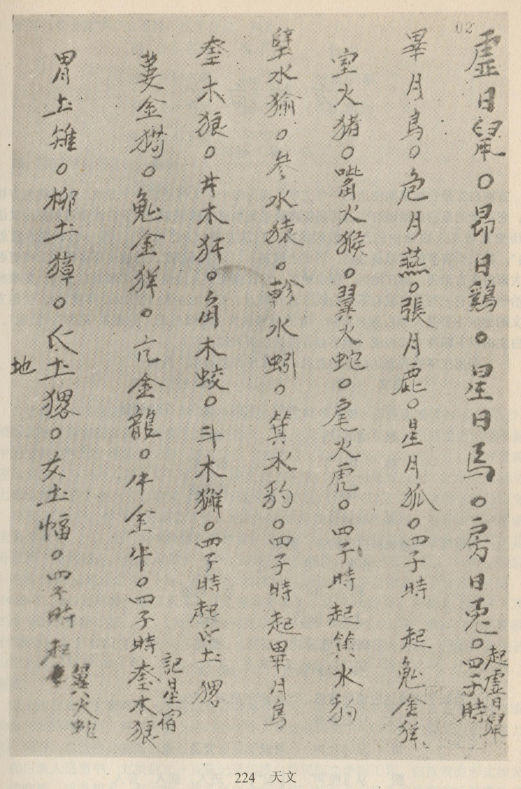 02
虛日鼠。昴日鷄。星日馬。房日兎。四子時
起虛日鼠
畢月烏。危月燕。張月鹿。星月狐。四子時起鬼金羊
室火猪。嘴火猴。翼火蛇。尾火虎。四子時起箕水豹
壁水㺄。参水猿。軫水蚓。箕水豹。四子時起畢月烏
奎木狼。井木犴。角木蛟。斗木獬。四子時起氐土
婁金猫。鬼金羊。亢金龍。牛金牛。四子時奎木狼
記星宿
胃土雉。柳土獐。氐土。女土幅。四子時起
翼火蛇
地
224 天文